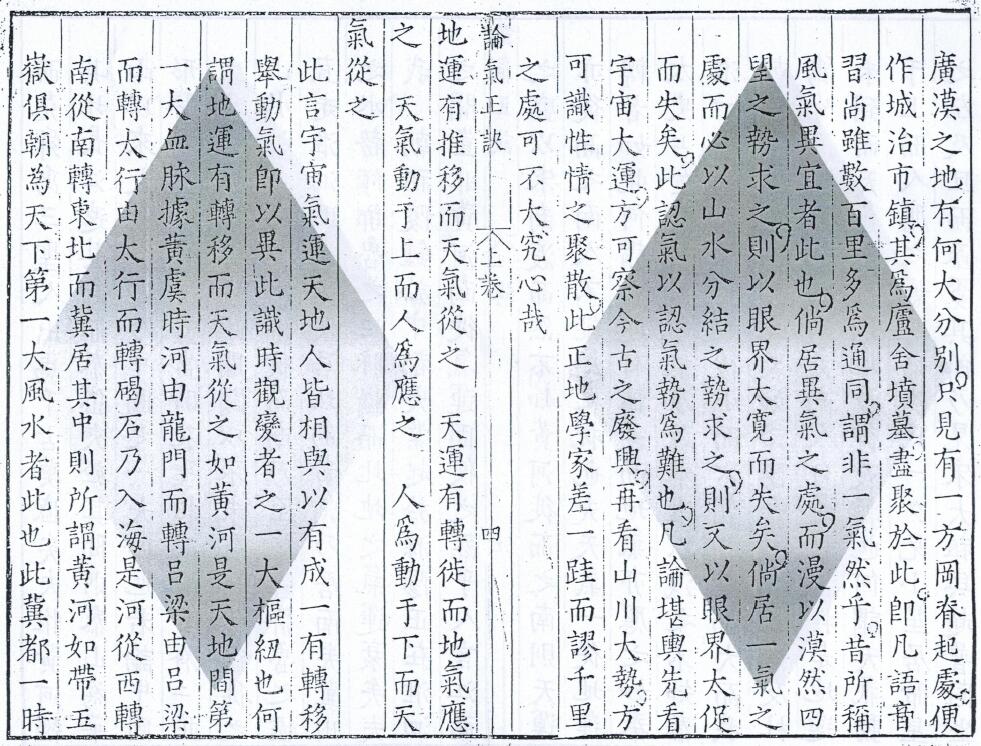 廣漠之地有何大分别只見有一方岡脊起處便
作城治市鎮其爲廬舍墳墓盡聚於此卽凡語音
習尚雖數百里多爲通同謂非一氣然乎昔所稱
風氣異宜者此也倘居異氣之處而漫以漠然四
望之勢求之則以眼界太寬而失矣倘居一氣之
處而必以山水分結之勢求之則又以眼界太促
而失矣此認氣以認氣勢爲難也凡論堪輿先看
宇宙大運方可察今古之廢興再看山川大勢方
可識性情之聚散此正地學家差一跬而謬千里
之處可不大究心哉
論氣正訣 上卷 四
地運有推移而天氣從之 天運有轉徙而地氣應
之 天氣動于上而人爲應之 人爲動于下而天
氣從之
此言宇宙氣運天地人皆相與以有成一有轉移
舉動氣卽以異此識時觀變者之一大樞紐也何
謂地運有轉移而天氣從之如黃河是天地間第
一大血脉據黃虞時河由龍門而轉呂梁由呂梁
而轉太行由太行而轉碣石乃入海是河從西轉
南從南轉東北而冀居其中則所謂黃河如帶五
嶽俱朝為天下第一大風水者此也此冀都一時